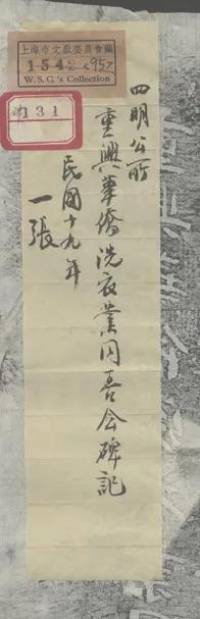 上海市文獻委員會藏
1542 <95>
W.S.G.'s Collection
131
四明公所
重興華僑洗衣業同善會碑記
民國十九年
一張